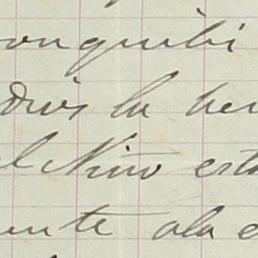 onquibi
dros la her
l Nino esta
unte ala e